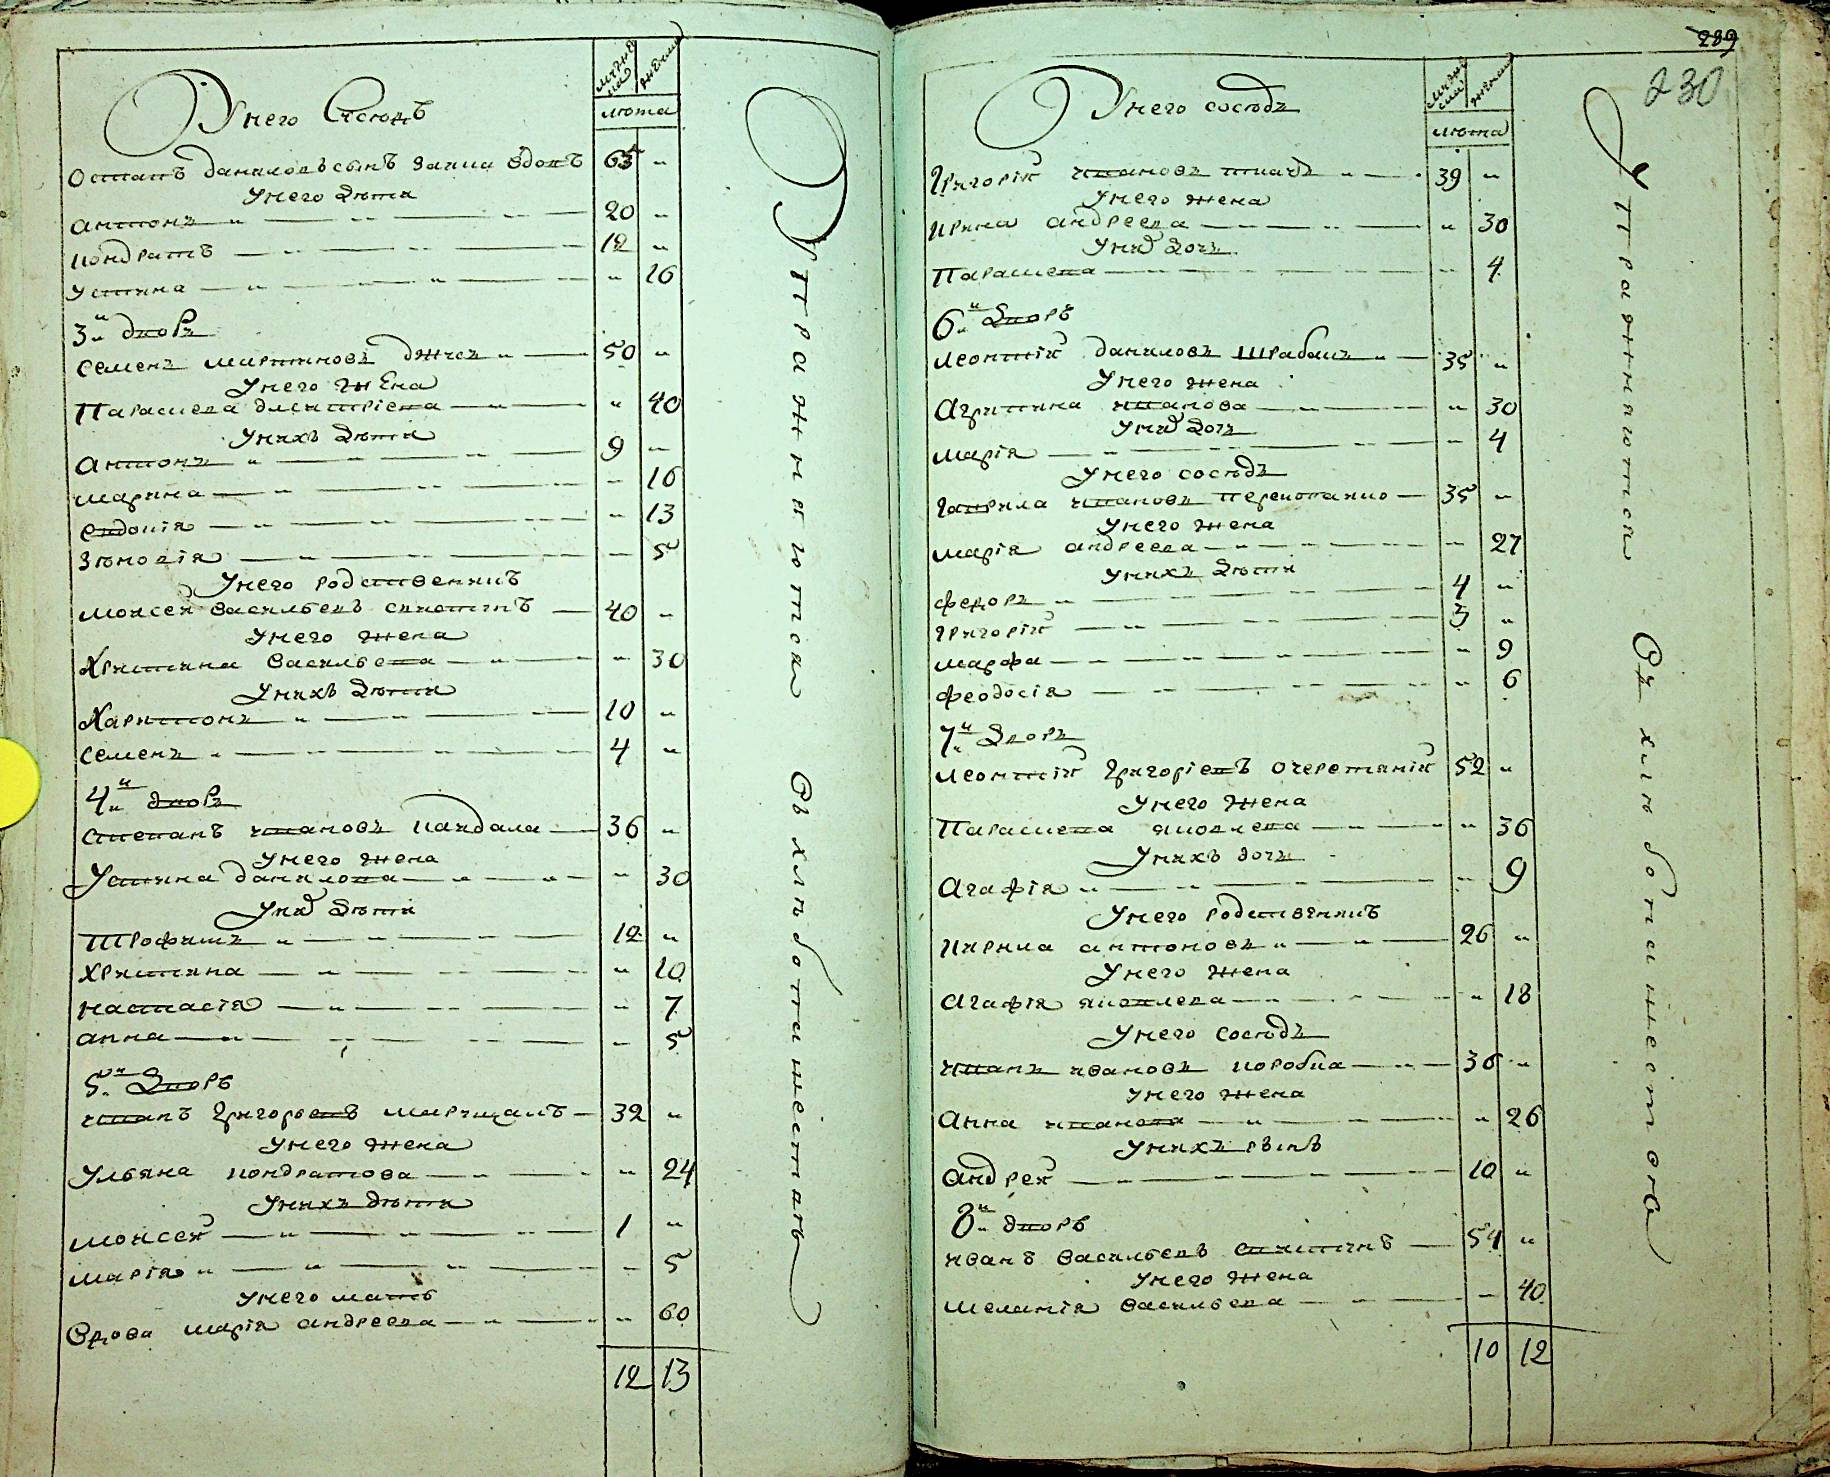 мужескъ
женскъ
лѣта
У него Сусѣдъ
Остапъ даниловъ сынъ Заика вдовъ 65 „
У него дѣти
антонъ „ 20 „
кондратъ 12 „
устина „ 16
3й дворъ
семенъ мартиновъ 50 „
У него жена
Параскева дмитріева „ 40
У нихъ дѣти
Антонъ 9 „
марина „ 16
евдокія „ 13
Зѣновія „ 5
У него родственникъ
моисей васильевъ 40 „
У него жена
Христина васильева „ 30
У нихъ дѣти
Харитонъ 10 „
семенъ 4 „
4й дворъ
степанъ ивановъ кандала 36 „
У него жена
Устина данилова „ 30
У нихъ дѣти
Трофимъ 12 „
Христина „ 10
настасія „ 7
анна „ 5
5й дворъ
иванъ григорьевъ 32 „
У него жена
Ульяна кондратова „ 24
У нихъ дѣти
моисей 1 „
марія „ 5
У него мать
Вдова марія андреева „ 60
12 13
Упражняются
Въ хлѣбопашествѣ
289
230
мужескій
женскій
лѣта
У него сосѣдъ
Григорій ивановъ ткачъ 39 „
У него жена
ирина андреева „ 30
У них дочь
Параскева „ 4
6й дворъ
леонтій даниловъ 35 „
У него жена
Агрипина иванова „ 30
У них дочь
марія „ 4
У него сосѣдъ
гаврила ивановъ 35 „
У него жена
марія андреева „ 27
У нихъ дѣти
федоръ 4 „
григорій 3 „
марфа „ 9
феодосія „ 6
7й дворъ
леонтій григоріевъ очеретяній 52 „
У него жена
Параскева яковлева „ 36
У нихъ дочь
Агафія „ 9
У него родственникъ
кирила антоновъ 26 „
У него жена
Агафія яковлева „ 18
У него сосѣдъ
иванъ ивановъ коробка 36 „
У него жена
Анна иванова „ 26
У нихъ сынъ
Андрей 10 „
8й дворъ
иванъ васильевъ 54 „
У него жена
меланія васильева „ 40
10 12
Упражняются
Въ хлѣбопашествѣ